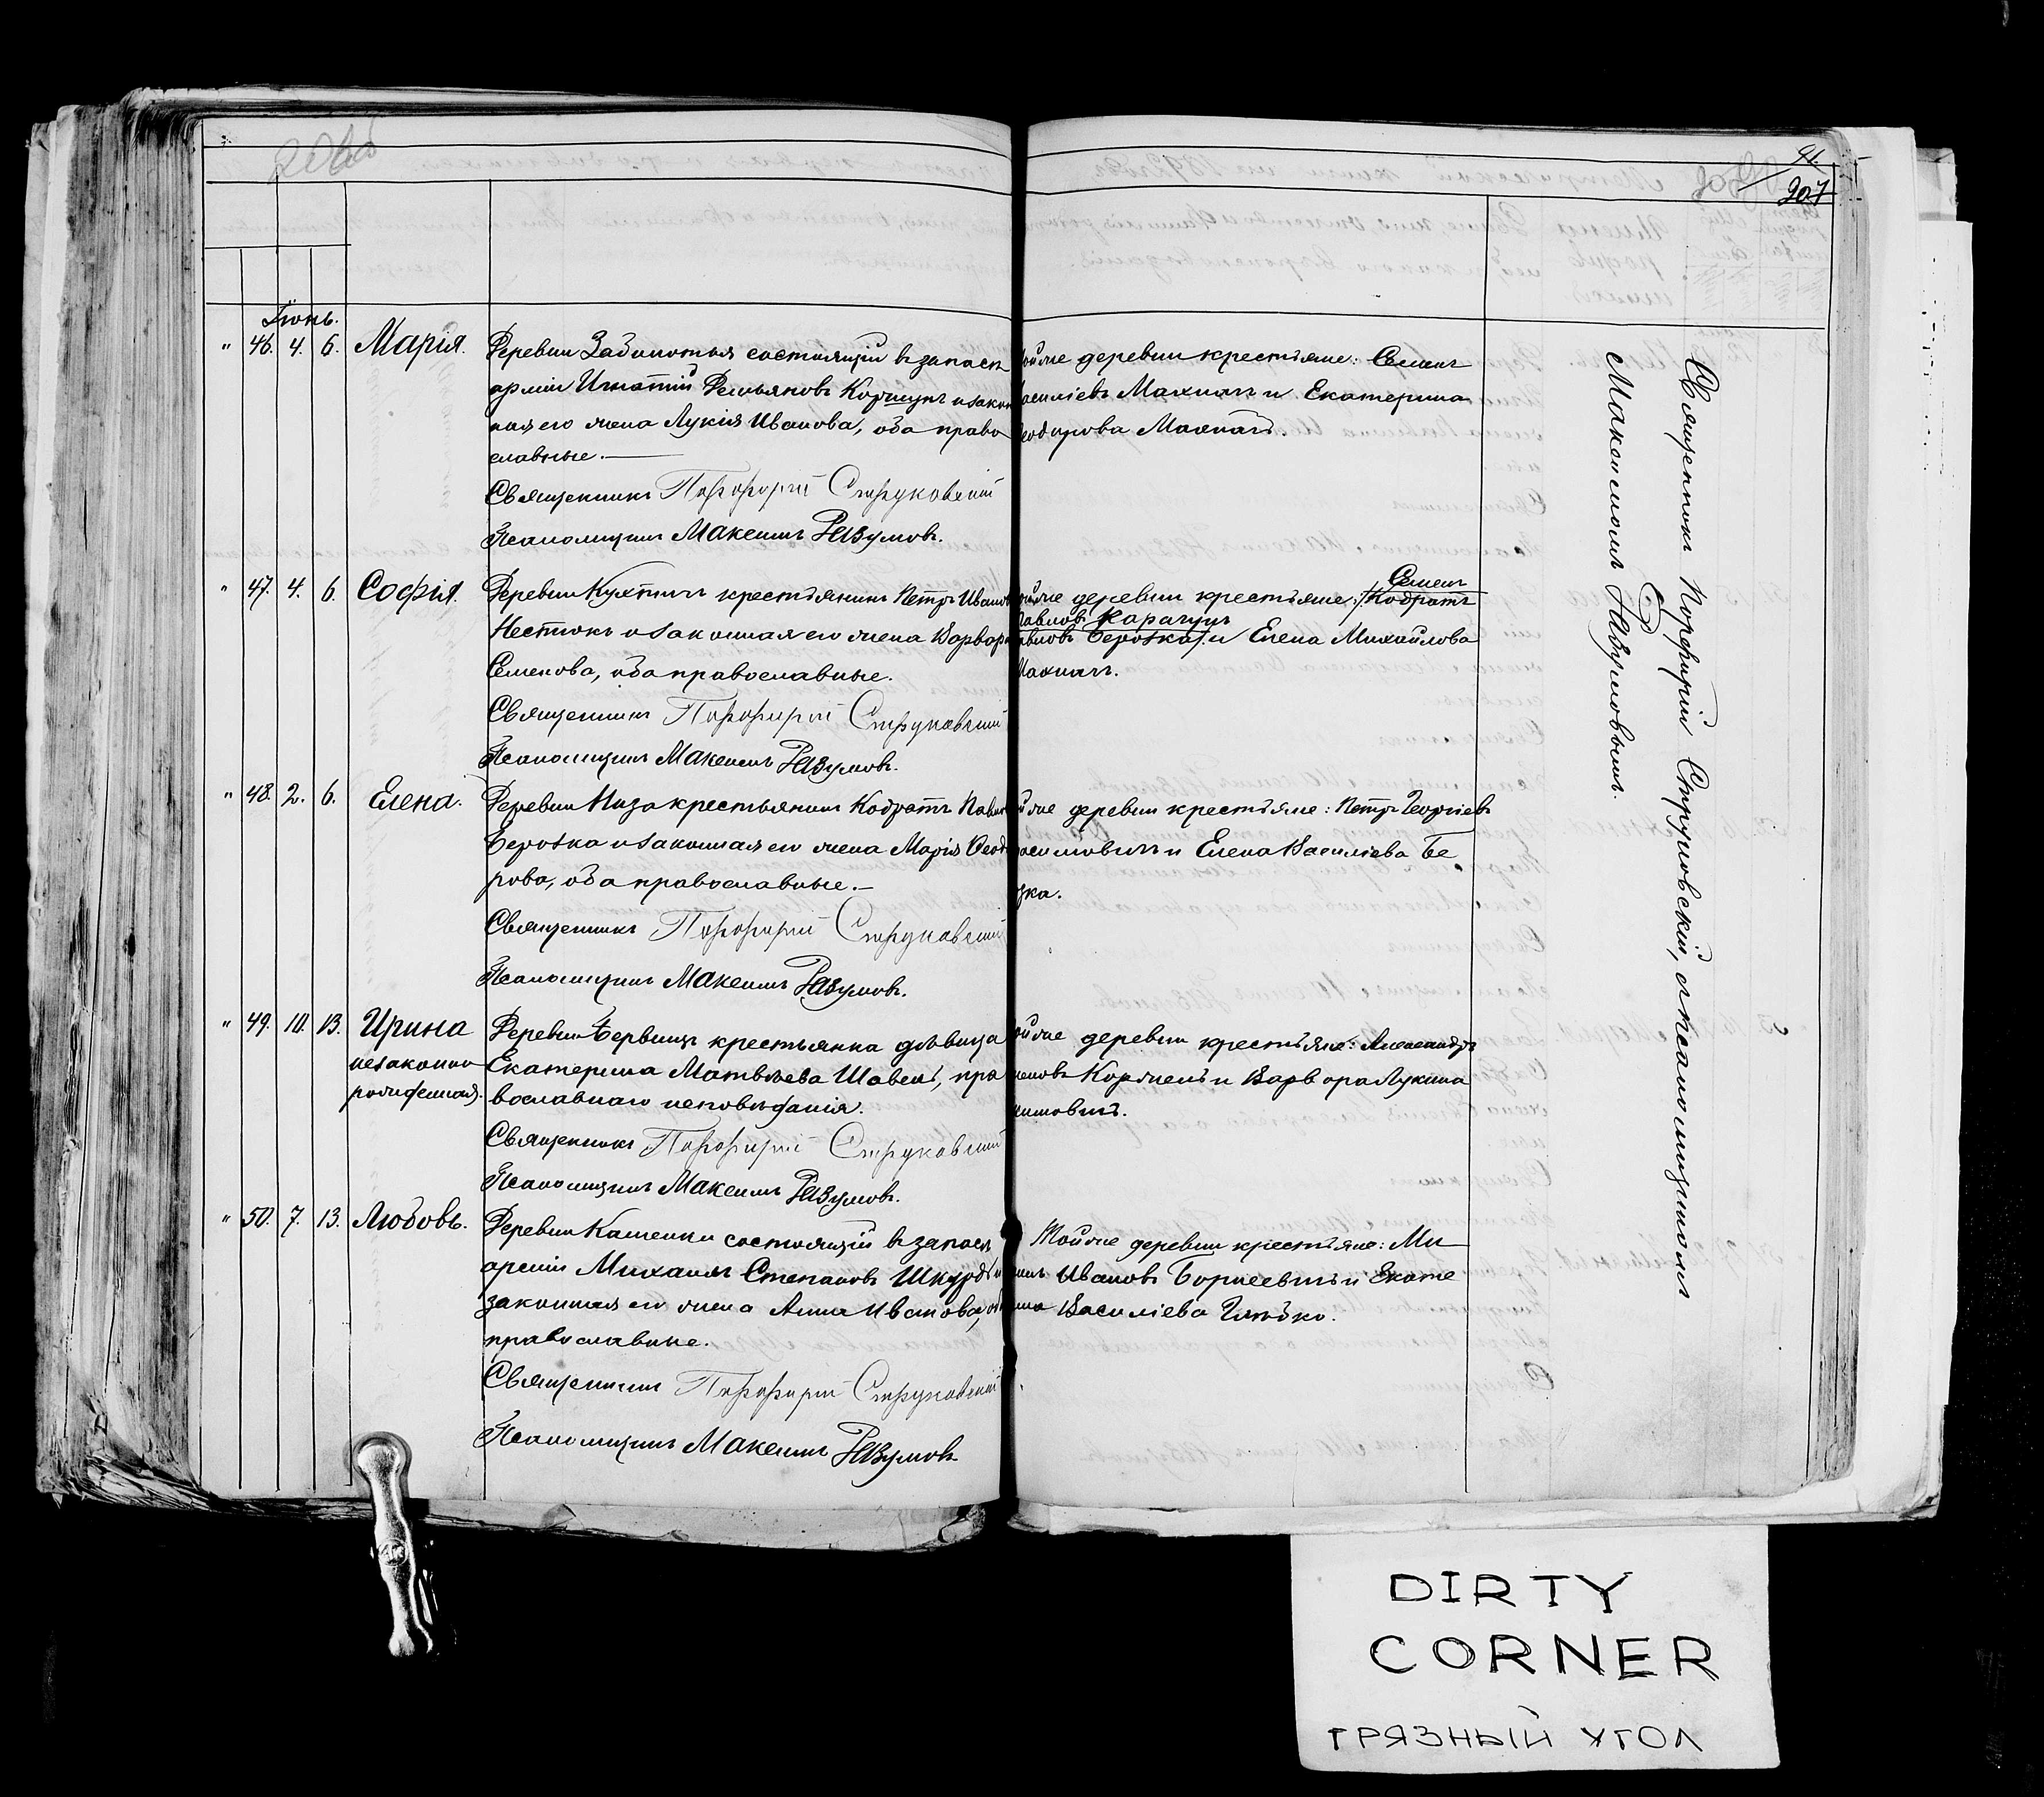 91.
207
Іюнь.
" 46. 4. 6. Марія. Деревни Заболотья состоящій въ запасѣ
арміи Игнатій Демьяновъ Коршунъ и закон
ная его жена Лукія Иванова, оба право
славные.
Священникъ Порфирій Струковскій
Псаломщикъ Максимъ Разумовъ.
деревни крестьяне: Семенъ
Махначъ и Екатерина
Махначъ.
" 47. 4. 6. Софія. Деревни Кухтичъ крестьянинъ Петръ Иванов
Нестюкъ и законная его жена Варвара
Семенова, оба православные.
Священникъ Порфирій Струковскій
Псаломщикъ Максимъ Разумовъ.
Семенъ
деревни крестьяне: /Кодратъ
Павловъ Карачунъ
Березка/ и Елена Михайлова
Махначъ.
" 48. 2. 6. Елена. Деревни Низа крестьянинъ Кодратъ Павлов
Березка и законная его жена Марія Ѳеодо
рова, оба православные.
Священникъ Порфирій Струковскій
Псаломщикъ Максимъ Разумовъ.
деревни крестьяне: Петръ Георгіевъ
и Елена Василіева Бе
зка.
" 49. 10. 13. Ирина
незаконно
рожденная.
Деревни крестьянка дѣвица
Екатерина Матвѣева Шавель, пра
вославнаго исповѣданія.
Священникъ Порфирій Струковскій
Псаломщикъ Максимъ Разумовъ.
деревни крестьяне: Александръ
и Варвара Лукина
" 50. 7. 13. Любовь. Деревни Кашенки состоящій въ запасѣ
арміи Михаилъ Степановъ Шкурдь и
законная его жена Анна Иванова, оба
православные.
Священникъ Порфирій Струковскій
Псаломщикъ Максимъ Разумовъ
Тойже деревни крестьяне: Ми
Ивановъ и Екате
Василіева
Священникъ Порфирій Струковскій, съ псаломщикомъ
Максимомъ Разумовымъ.
DIRTY
CORNER
ГРЯЗНЫЙ УГОЛ